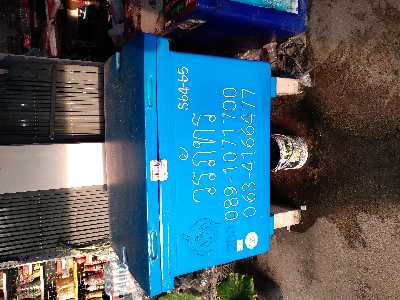 S64-65
วรภัทร
200 089-1071700
063-4166477